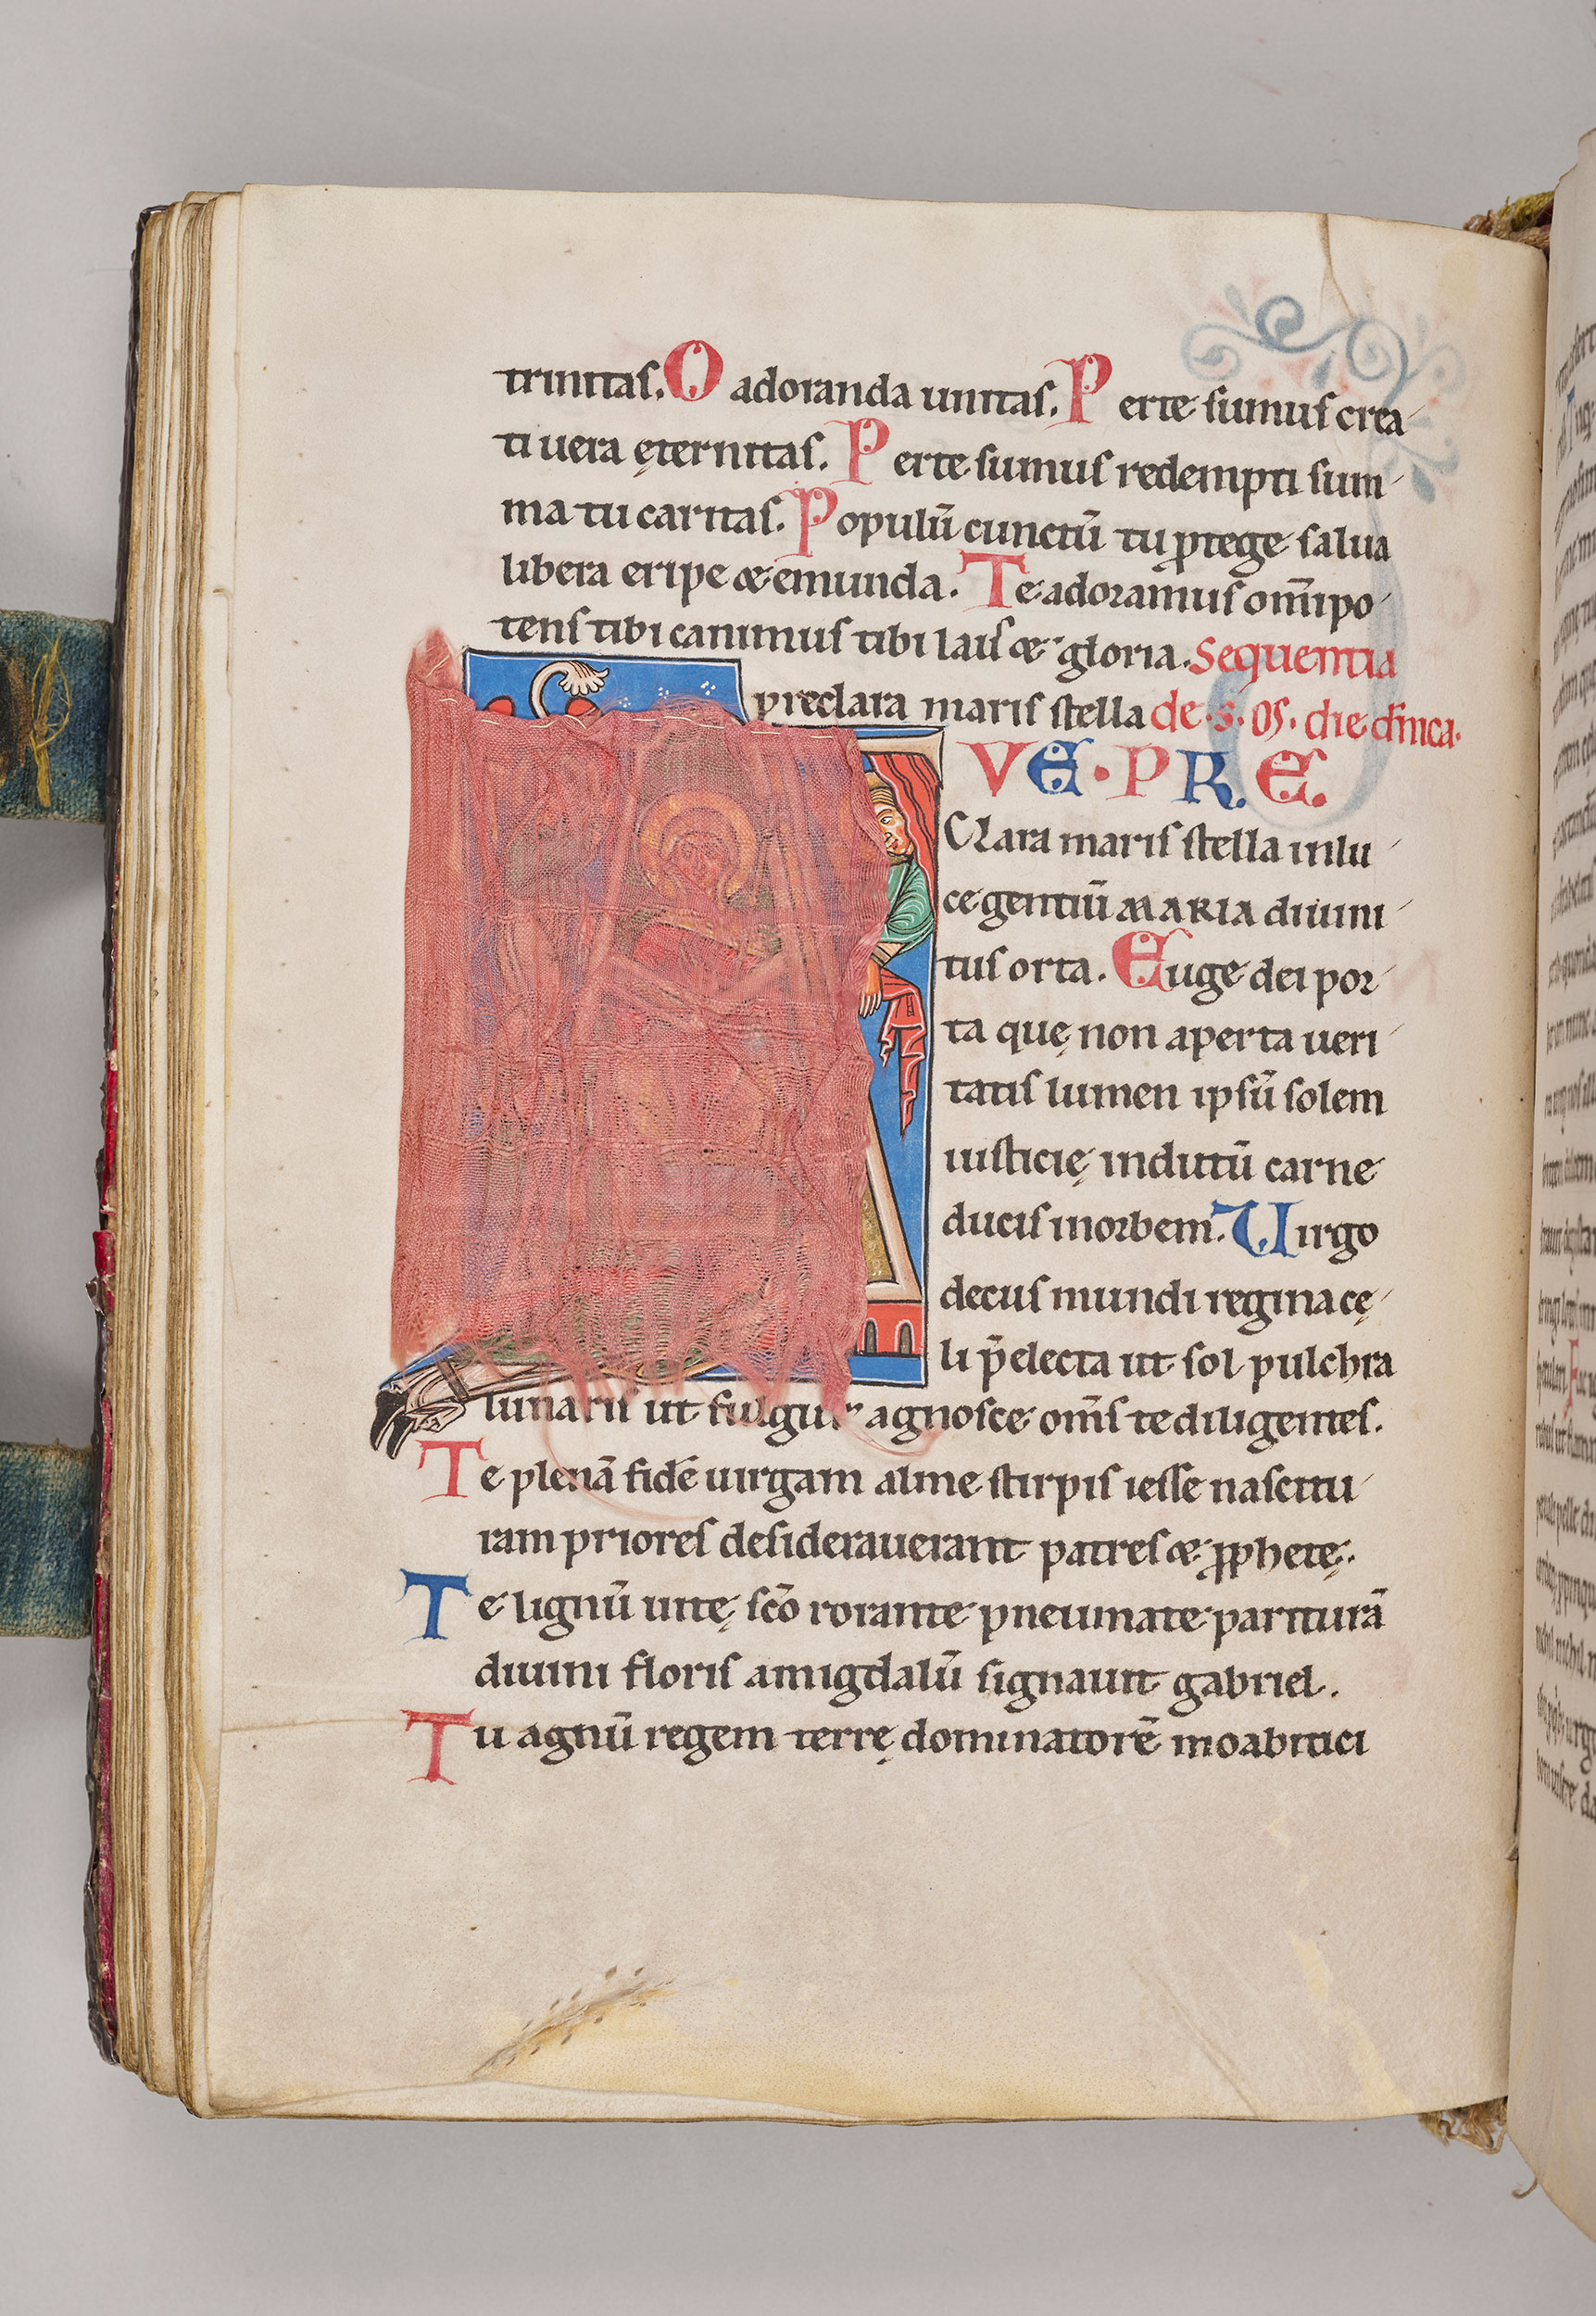 trinitaſ. O adoranda unitaſ. P erte ſumuſ crea
ti uera ęternitaſ. P erte ſumuſ redempti ſum
ma tu caritaſ. Populū cunctū tu ꝓtege ſalua
libera eripe & emunda. Te adoramuſ om̄ipo
tenſ tibi canimuſ tibi lauſ & gloria. Sequentia
preclara mariſ ſtella de . s . m̄. die dn̄ica.
VE . PRE.
Clara mariſ ſtella inlu
ce gentiū MARIA diuini
tuſ orta. Euge dei por
ta quę non aperta ueri
tatiſ lumen ipſū ſolem
iuſticię indutū carne
duciſ inorbem. Uirgo
decuſ mundi regina cę
li p̄electa ut ſol pulchra
lunariſ ut fulgur agnoſce om̄ſ te diligenteſ.
Te plenā fidē uirgam alme ſtirpiſ ieſſe naſcitu
ram prioreſ deſiderauerant patreſ & ꝓphetę.
Te lignū uitę ſcō rorante pneumate pariturā
diuini floriſ amigdalū ſignauit gabriel.
Tu agnū regem terrę dominatorē moabitici